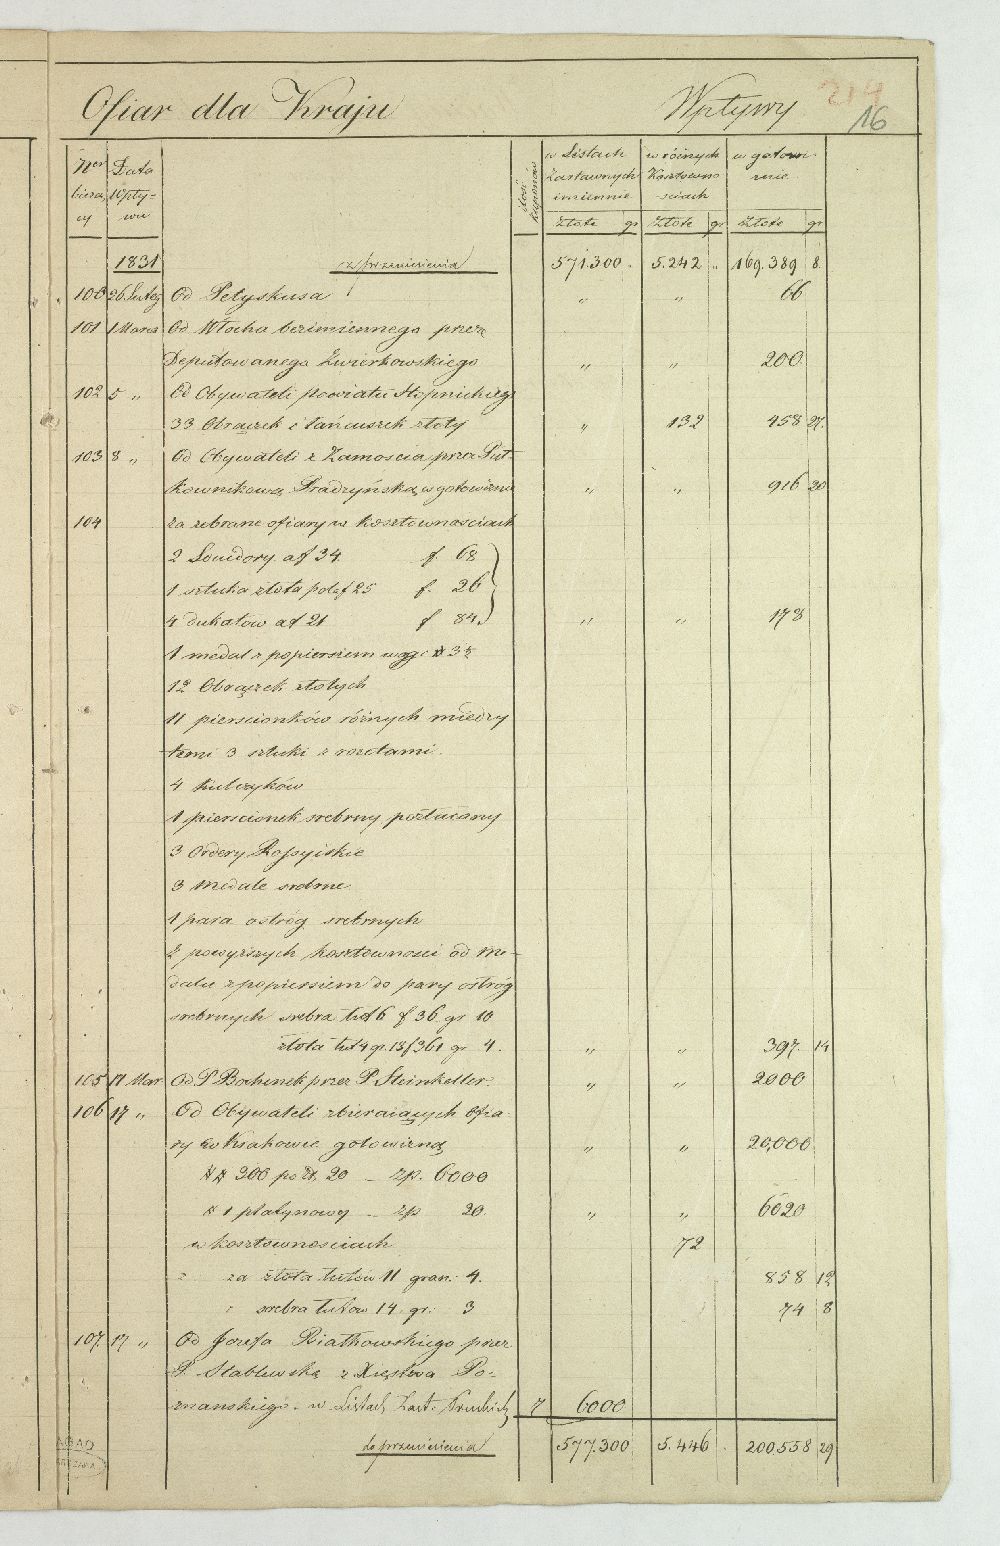 Ofiar dla Kraju Wpływy 214
16
Ner bieżą cy
Data Wpły- wu
ilość kuponów
w Listach Zastawnych imiennie
w różnych Kosztowno ściach
w gotowi- znie
złote gr złote gr złote gr
1831 z przeniesienia 571.300 . 5.242 „ 169.389 8.
100 26 Luteg Od Petyskusa „ „ 66
101 1 Marca Od Włocha bezimiennego przez
Deputowanego Zwierkowskiego „ „ 200
102 5 „ Od Obywateli powiatu Stopnickiego
33 Obrączek i łańcuszek złoty „ 132 458 21.
103 8 „ Od Obywateli z Zamościa przez Puł-
kownikową Prądzyńską w gotowiznie „ „ 916 20
104 za zebrane ofiary w kosztownościach
2 Louidory a f 34 f. 68
1 sztuka złota pol. f 25 f. 26
4 dukatów a f 21 f 84. „ „ 178
1 medal z popiersiem
12 Obrączek złotych
11 pierscionków różnych między
temi 3 sztuki z rozetami.
4 kulczyków
1 pierscionek srebrny pozłacany
3 Ordery Rossyiskie
3 Medale srebrne
1 para ostróg srebrnych
Z powyższych kosztowności od me-
dalu z popiersiem do pary ostróg
srebrnych srebra łut 6 f 36 gr 10
złota łut 4 gr. 13 f 361 gr 4. „ „ 397. 14
105 17 Mar. Od P Bochenek przez P Steinkeller. „ „ 2000
106 17 „ Od Obywateli zbieraiących Ofia-
ry w Krakowie gotowizną „ „ 20,000
300 po zł. 20 – zp. 6000
1 platynowy – zp 20. „ „ 6020
w kosztownościach 72
„ za złota łutów 11 gran. 4. 858 12
„ srebra łutów 14 gr. 3 74 8
107. 17 „ Od Jozefa Riatkowskiego przez
P. Stablewską z Xięstwa Po-
znańskiego. w Listach Zast. Pruskich 7 6000
do przeniesienia 577.300 5.446 . 200558 29
AGAD
WARSZAWA